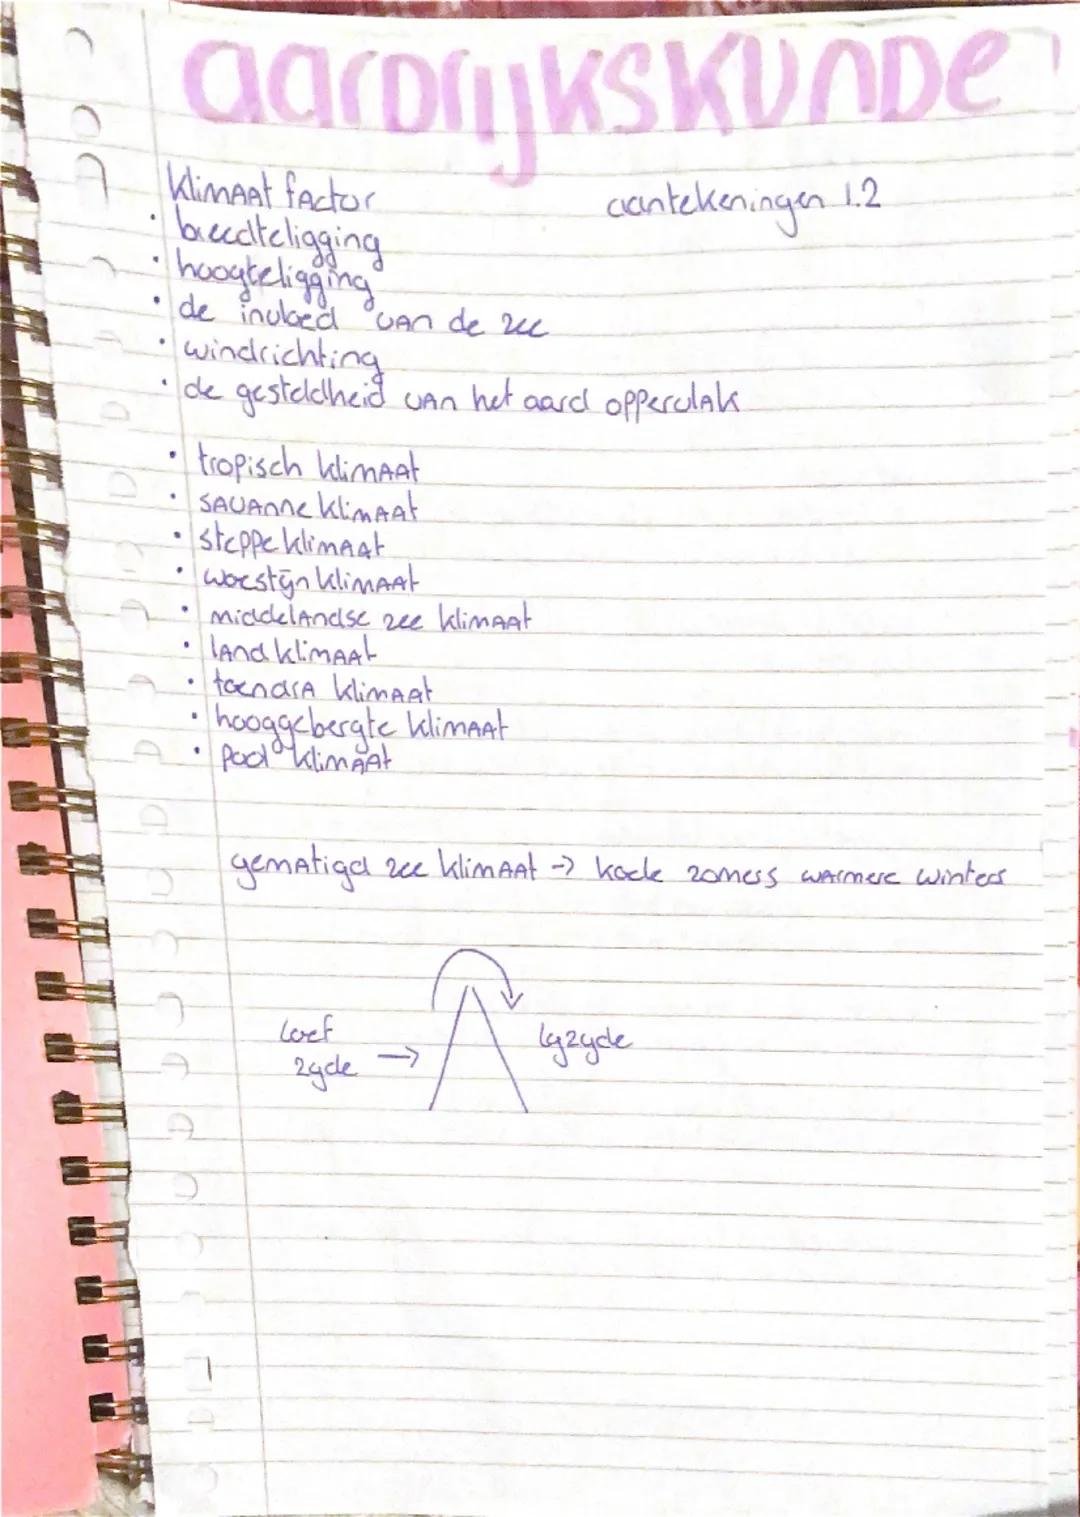 aardrijkskunde
Klimaat factor
aantekeningen 1.2
• breedteligging
• hoogteligging
• de invloed van de zee
• windrichting
• de gesteldheid van het aard oppervlak
• tropisch klimaat
• savanne klimaat
• steppe klimaat
• woestijn klimaat
• middelandse zee klimaat
• land klimaat
• toendra klimaat
• hooggebergte klimaat
• pool klimaat
gematigd zee klimaat -> koele zomers warmere winters
loef
zijde ->
lijzijde